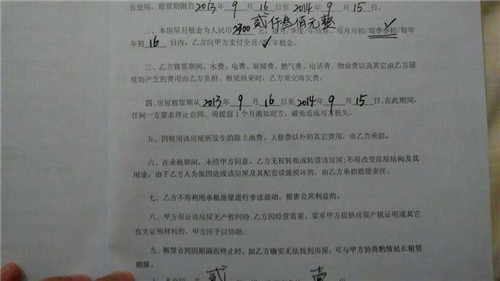 位使用，租赁期限自2013年9月16日至2014年9月15日。
二、本房屋月租金为人民币2300贰仟叁佰元整元，按月/季度/年结算。每月月初/每季季初/每年
年初16日内，乙方向甲方支付全月/季/年租金。
三、乙方租赁期间，水费、电费、取暖费、燃气费、电话费、物业费以及其它由乙方居
住而产生的费用由乙方负担。租赁结束时，乙方须交清欠费。
四、房屋租赁期从2013年9月16日至2014年9月15日。在此期间，
任何一方要求终止合同，须提前1个月通知对方，避免造成双方损失。
五、因租用该房屋所发生的除土地费、大修费以外的其它费用，由乙方承担。
六、在承租期间，未经甲方同意，乙方无权转租或转借该房屋；不得改变房屋结构及其
用途，由于乙方人为原因造成该房屋及其配套设施损坏的，由乙方承担赔偿责任。
七、乙方不得利用承租房屋进行非法活动，损害公共利益的。
八、甲方保证该房屋无产权纠纷；乙方因经营需要，要求甲方提供房屋产权证明或其它
有关证明材料的，甲方应予以协助。
九、租赁合同因期满而终止时，如乙方确实无法找到房屋，可与甲方协商酌情延长租赁
期限。
贰 壹